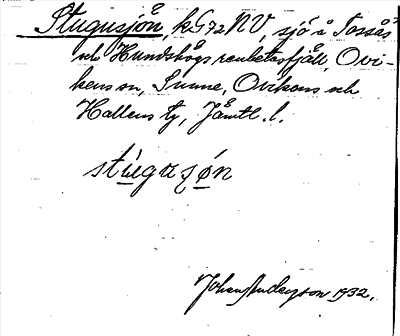 Stugusjön, kG72NV, sjö i Tossås
och Hundshögs renbetesfjäll, Ovi-
kens sn, Sunne, Ovikens och
Hallens tg, Jämtl. l.
stùgɑʂø̀n
Johan Anderson 1932.